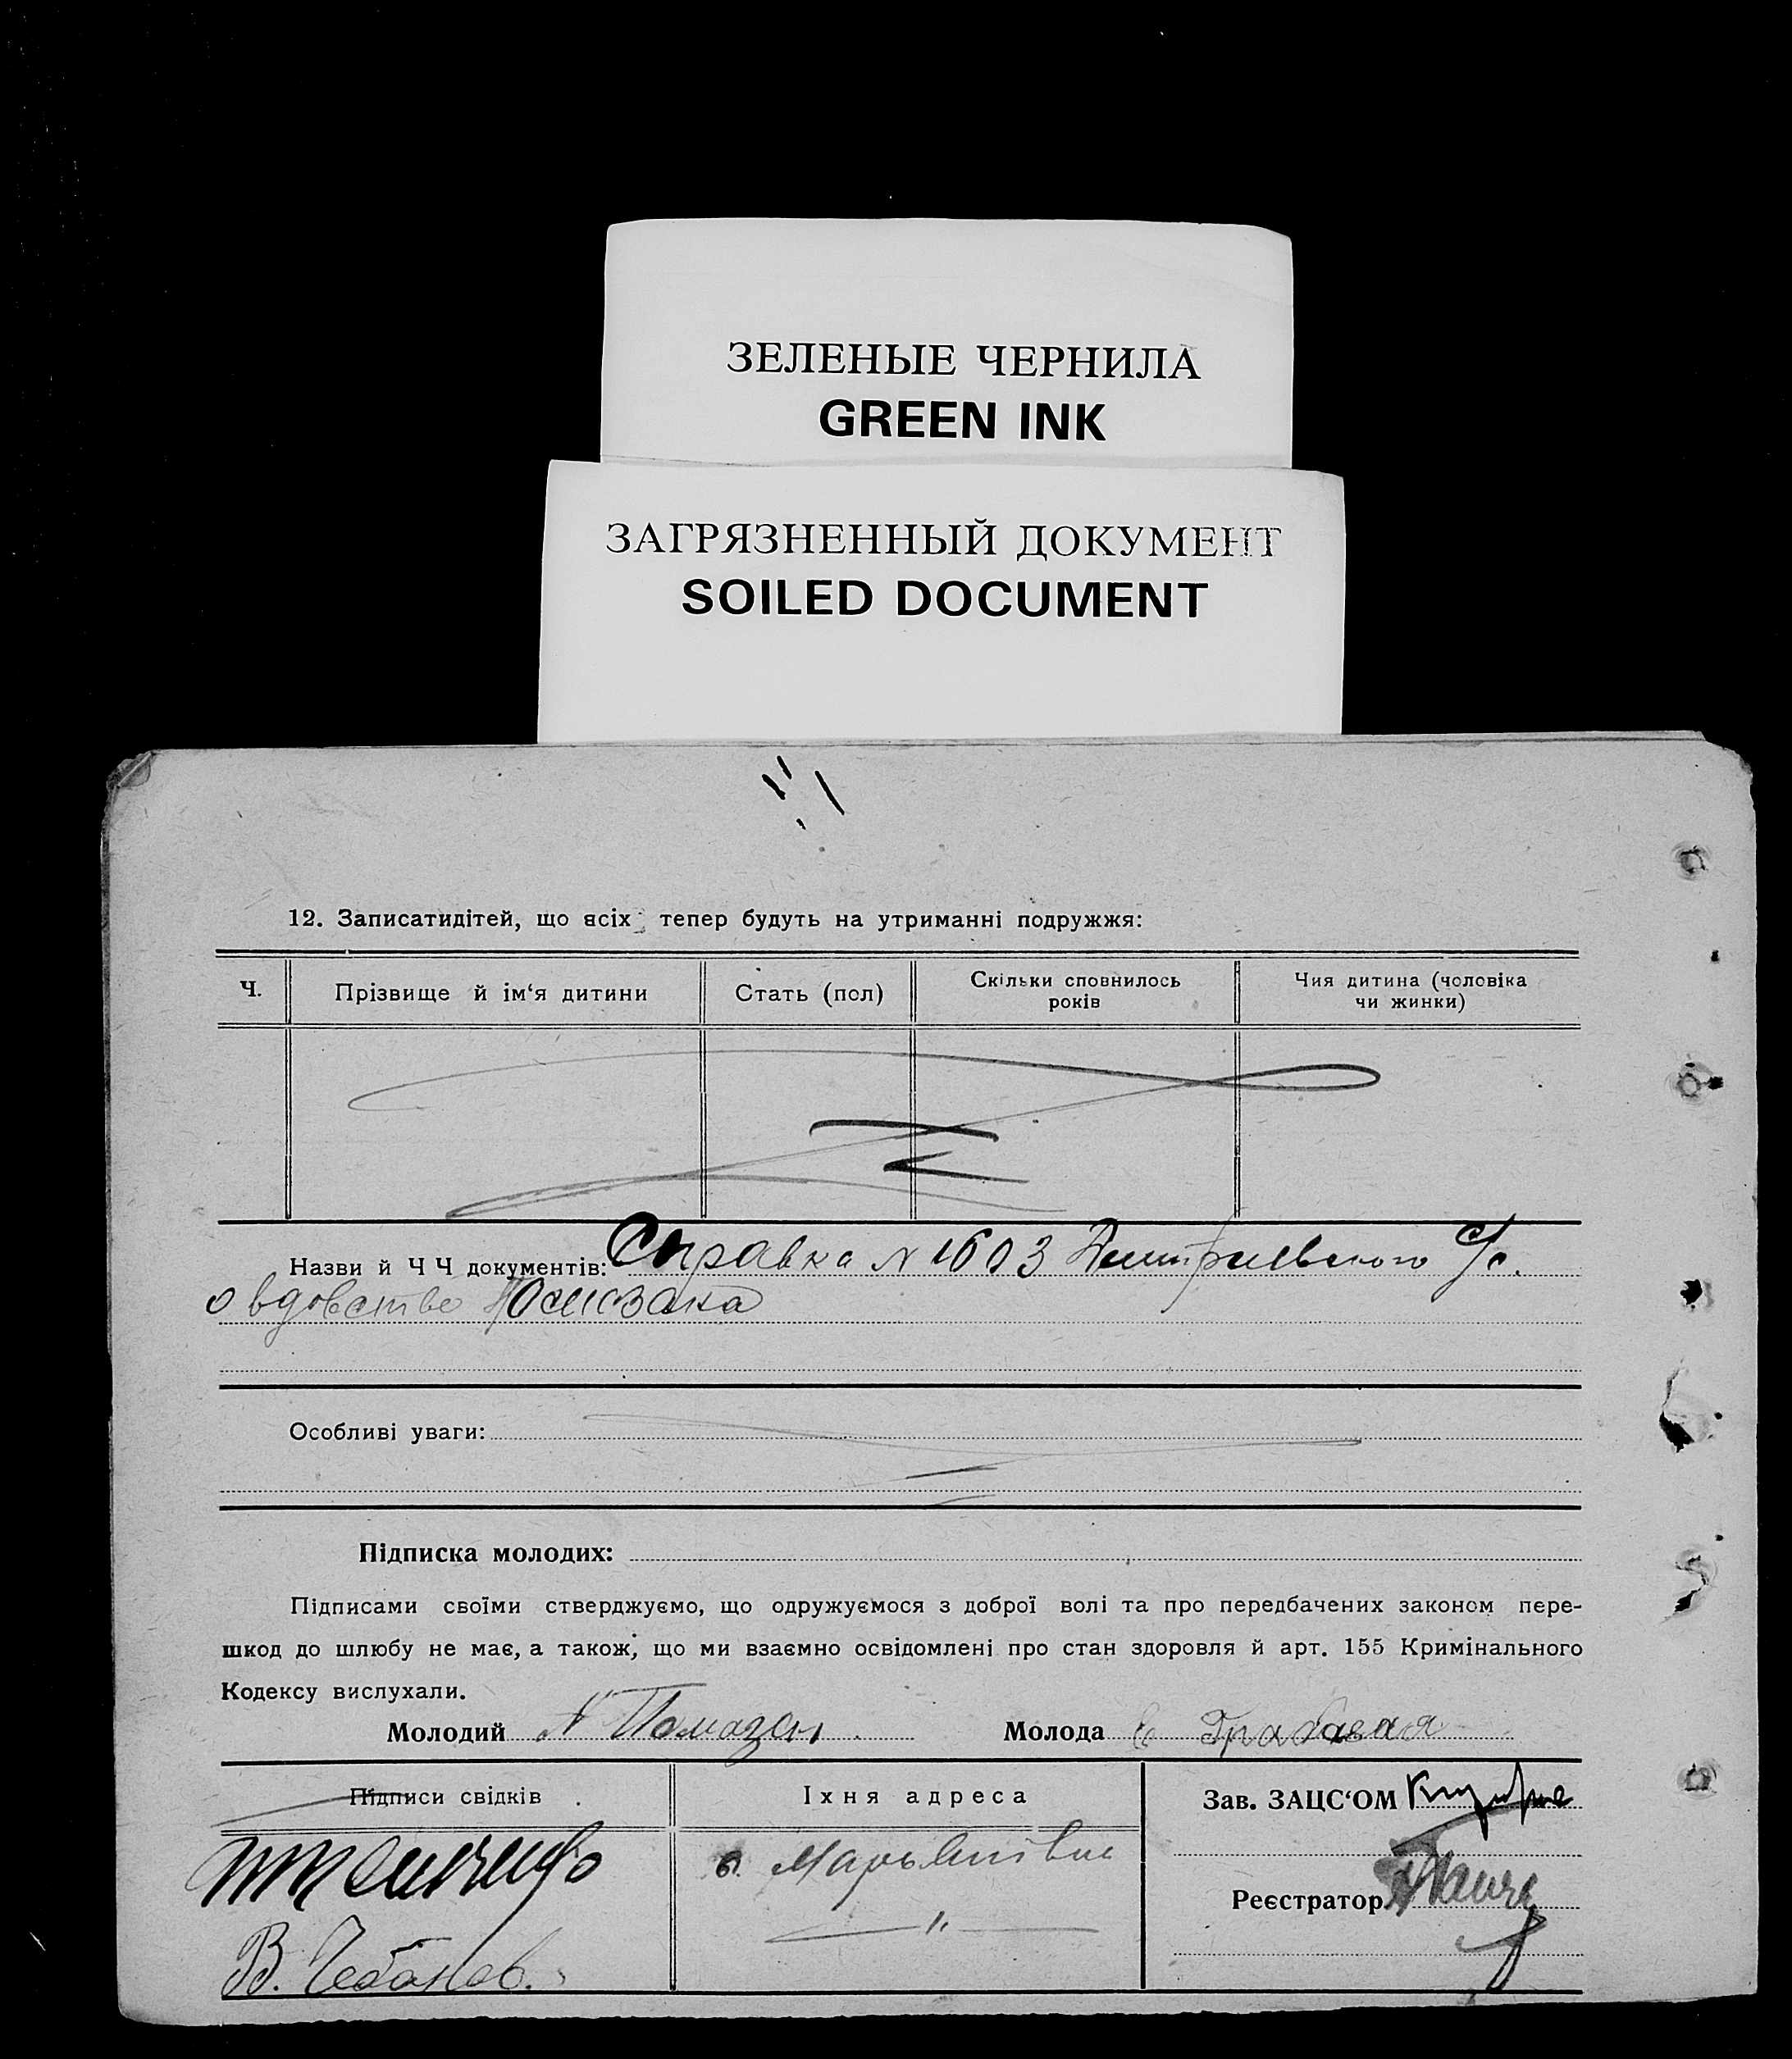 ЗЕЛЕНЫЕ ЧЕРНИЛА
GREEN INK
ЗАГРЯЗНЕННЫЙ ДОКУМЕНТ
SOILED DOCUMENT
12. Записатидітей, що всіх тепер будуть на утриманні подружжя:
Ч.
Прізвище й ім‘я дитини
Стать (пол)
Скільки сповнилось
років
Чия дитина (чоловіка
чи жинки)
Назви й Ч Ч документів: Справка N 1603 Дмитриевского с/с.
о вдовстве
Особливі уваги:
Підписка молодих:
Підписами своїми стверджуємо, що одружуємося з доброї волі та про передбачених законом пере-
шкод до шлюбу не має, а також, що ми взаємно освідомлені про стан здоровля й арт. 155 Кримінального
Кодексу вислухали.
Молодий Помазан Молода Грабовая
Підписи свідків
Їхня адреса
Зав. ЗАЦС‘ОМ
с. Марьятівка
Реєстратор
В. Чебанов.
"